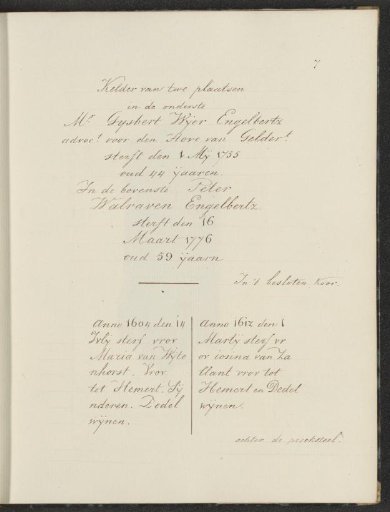 7
Kelder van twe plaatsen
in de onderste
Mr Gysbert Wyer Engelbertz
advoct voor den Hove van Gelderl
sterft den 1 My 1735
oud 44 yaaren
In de bovenste Peter
Walraven Engelbertz
sterft den 16
Maart 1776
oud 59 yaarn
In 't besloten koor
Anno 1604 den 14
July sterf vror
Maria van Wyte
nhorst. Vror
tot Hemert. Sy
nderen. Dedel
wynen.
Anno 1612 den 1
Marty sterf vr
ov iosina van Za
llant vror tot
Hemert en Dedel
wynen.
achter de preekstoel.